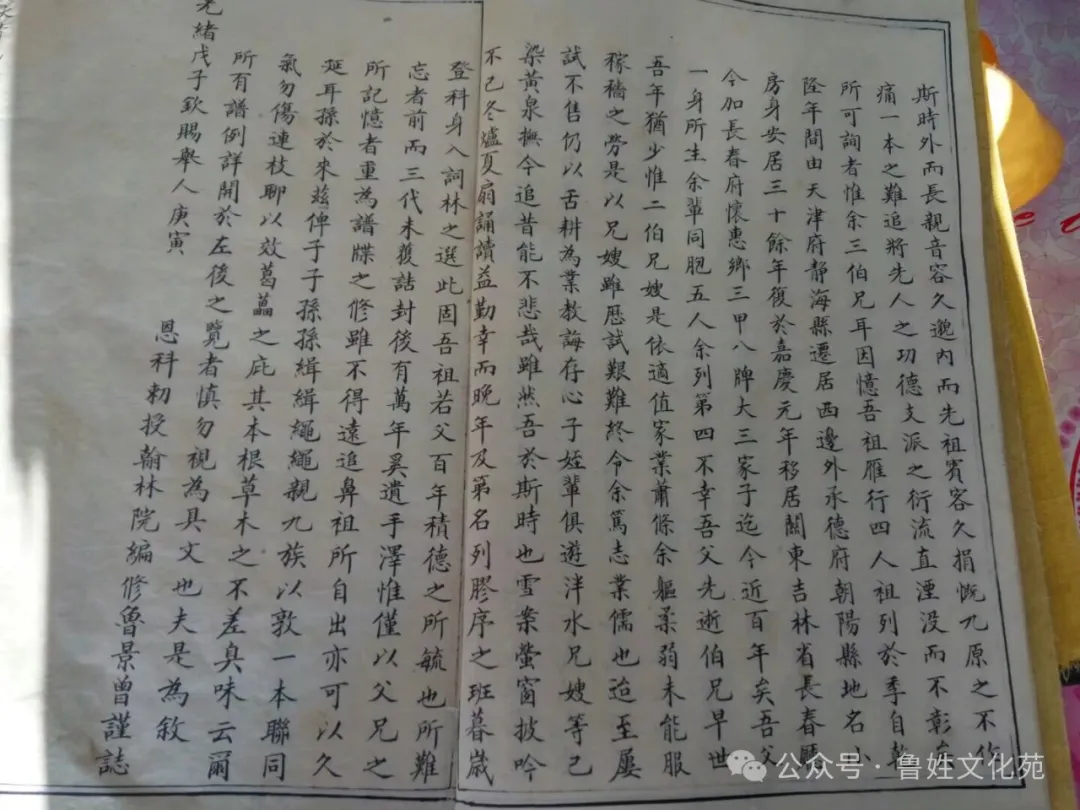 斯時外而長親音容久邈內而先祖賓客久捐慨九原之不作
痛一本之難追將先人之功德支派之衍流直湮没而不彰
所可詢者惟余三伯兄耳因憶吾祖雁行四人祖列於季自乾
隆年間由天津府靜海縣遷居西邊外承德府朝陽縣地名小
房身安居三十餘年復於嘉慶元年移居關東吉林省長春廳
今加長春府懷惠鄉三甲八牌大三家子迄今近百年矣吾父
一身所生余輩同胞五人余列第四不幸吾父先逝伯兄早世
吾年猶少惟二伯兄嫂是依適值家業蕭條余軀柔弱未能服
稼穡之勞是以兄嫂雖歷試艱難終令余篤志業儒也迨至屢
試不售仍以舌耕為業教誨存心子姪輩俱遊泮水兄嫂等已
染黃泉撫今追昔能不悲哉雖然吾於斯時也雪案螢窗披吟
不已冬爐夏扇誦讀益勤幸而晚年及第名列膠序之班暮歲
登科身入詞林之選此固吾祖若父百年積德之所毓也所難
忘者前而三代未獲誥封後有萬年奚遺手澤惟僅以父兄之
所記憶者重為譜牒之修雖不得遠追鼻祖所自出亦可以久
延耳孫於來茲俾子子孫孫緝緝繩繩親九族以敦一本聯同
氣勿傷連枝聊以效葛藟之庇其本根草木之不差臭味云爾
所有譜例詳開於左後之覽者慎勿視為具文也夫是為敘
光緒戊子欽賜舉人庚寅
恩科勅授翰林院編修魯景曾謹誌
公众号·鲁姓文化苑